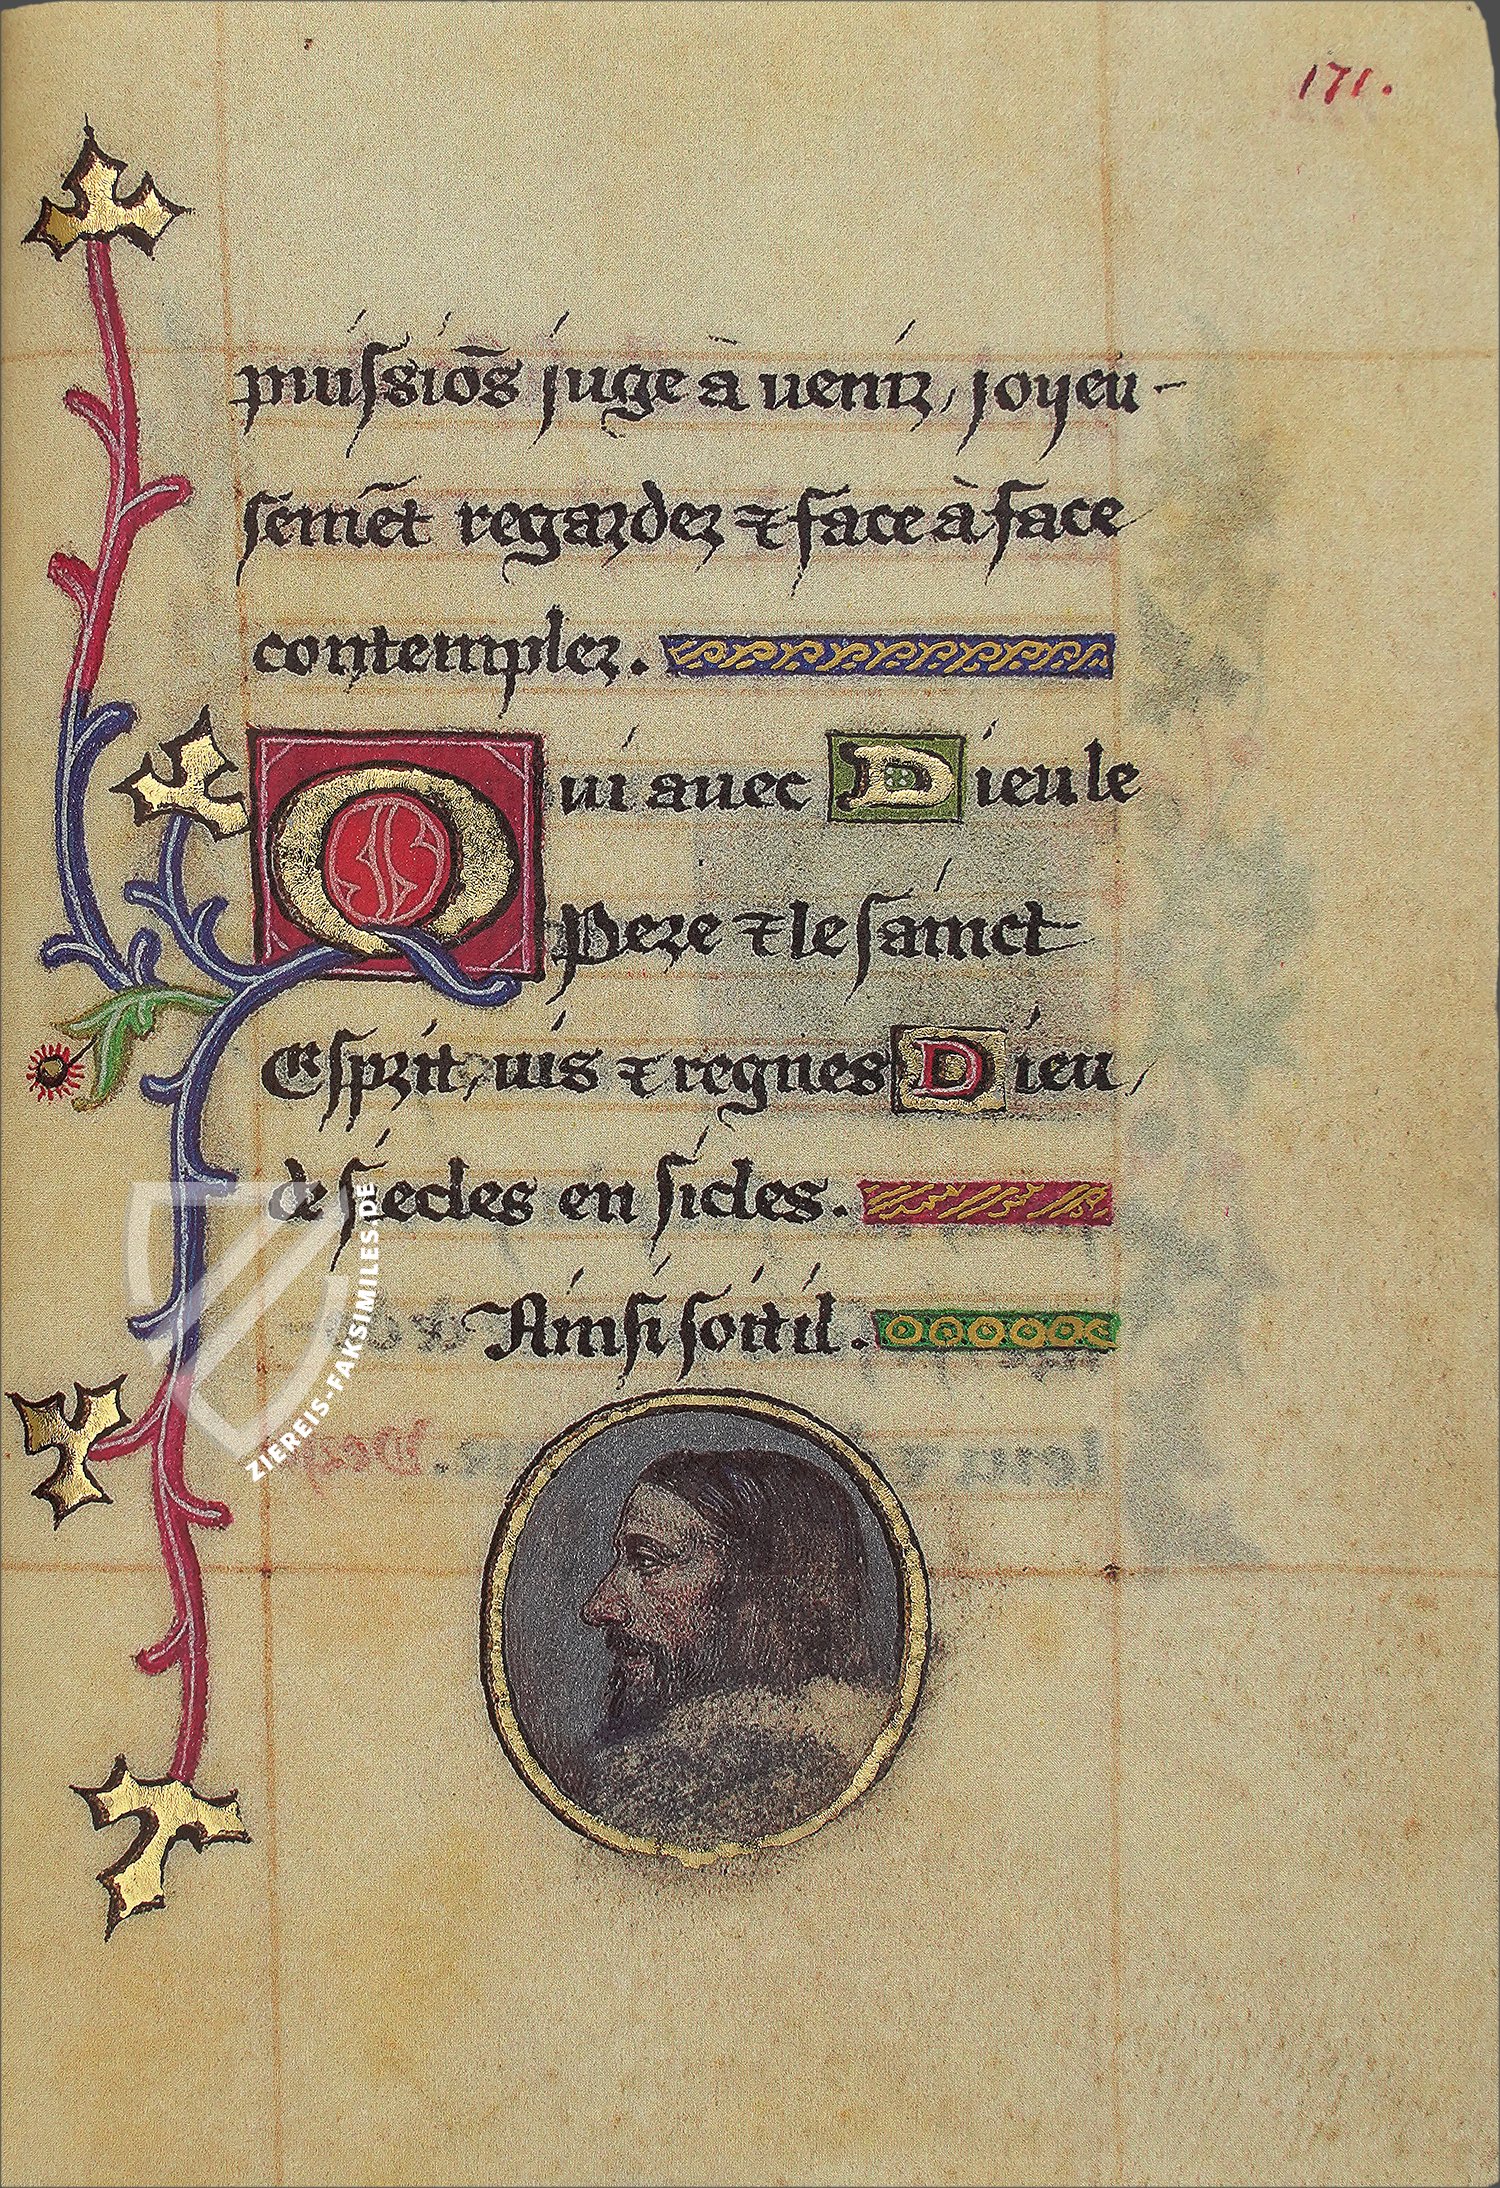 171.
puissiōs juge à venir, joyeu-
semēt regarder & face à face
contempler.
Qui avec Dieu le
Pere & le sainct
Esprit, vis & regnes Dieu,
de siecles en sicles.
Ainsi soit il.
ZIEREIS-FAKSIMILES.DE